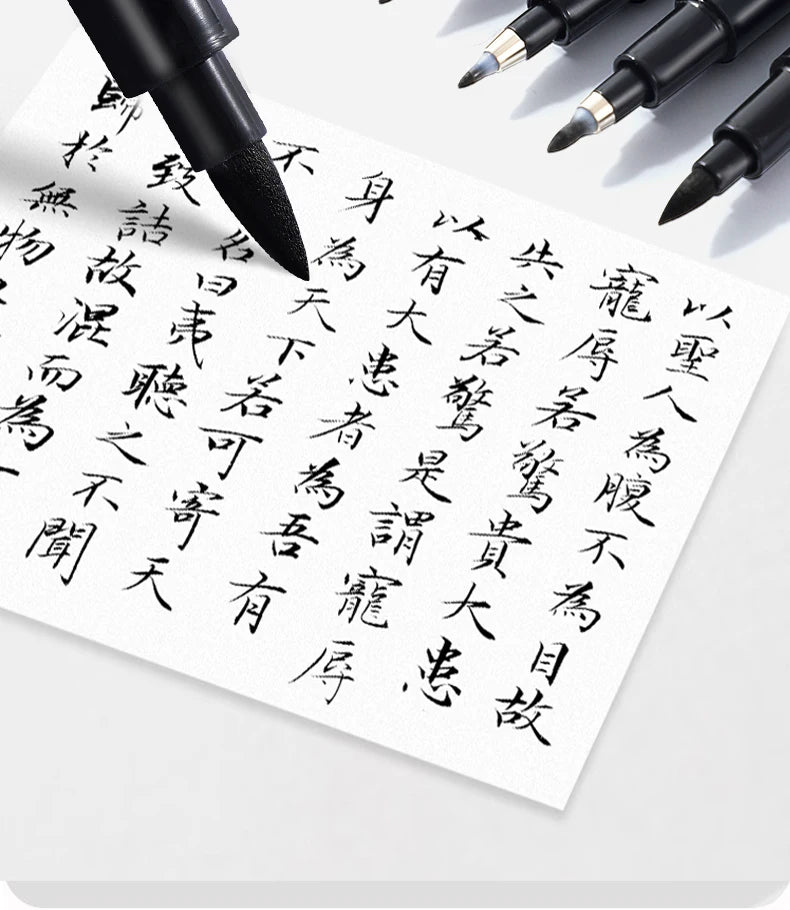 以聖人為腹不為目故
寵辱若驚貴大患
失之若驚是謂寵辱
以有大患者為吾有
身為天下若可寄天
不名曰夷聽之不聞
致詰故混而為一
歸於無物